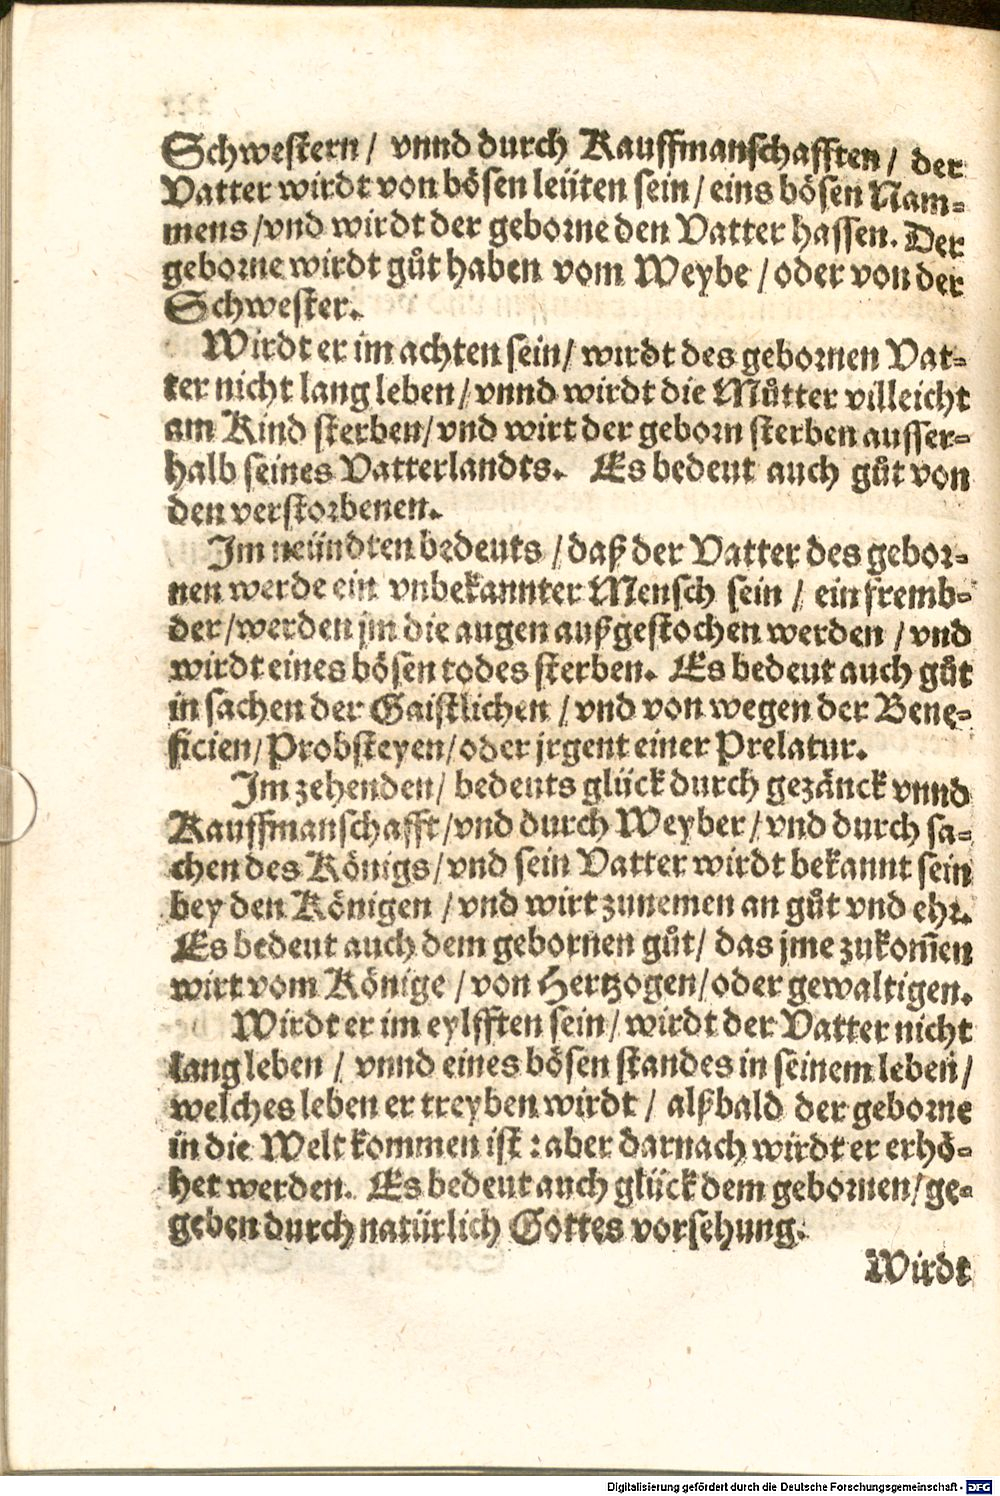 Schwestern / vnnd durch Kauffmanschafften / der
Vatter wirdt von bösen leüten sein / eins bösen Nam-
mens / vnd wirdt der geborne den Vatter hassen. Der
geborne wirdt gůt haben vom Weybe / oder von der
Schwester.
Wirdt er im achten sein / wirdt des gebornen Vat-
ter nicht lang leben / vnnd wirdt die Můtter villeicht
am Kind sterben / vnd wirt der geborn sterben ausser-
halb seines Vatterlandts. Es bedeut auch gůt von
den verstorbenen.
Im neündten bedeuts / daß der Vatter des gebor-
nen werde ein vnbekannter Mensch sein / ein fremb-
der / werden jm die augen außgestochen werden / vnd
wirdt eines bösen todes sterben. Es bedeut auch gůt
in sachen der Gaistlichen / vnd von wegen der Bene-
ficien / Probsteyen / oder jrgent einer Prelatur.
Im zehenden / bedeuts glück durch gezänck vnnd
Kauffmanschafft / vnd durch Weyber / vnd durch sa-
chen des Königs / vnd sein Vatter wirdt bekannt sein
bey den Königen / vnd wirt zunemen an gůt vnd ehr.
Es bedeut auch dem gebornen gůt / das jme zukom̃en
wirt vom Könige / von Hertzogen / oder gewaltigen.
Wirdt er im eylfften sein / wirdt der Vatter nicht
lang leben / vnnd eines bösen standes in seinem leben /
welches leben er treyben wirdt / alßbald der geborne
in die Welt kommen ist : aber darnach wirdt er erhö-
het werden. Es bedeut auch glück dem gebornen / ge-
geben durch natürlich Gottes vorsehung.
Wirdt
Digitalisierung gefördert durch die Deutsche Forschungsgemeinschaft - DFG